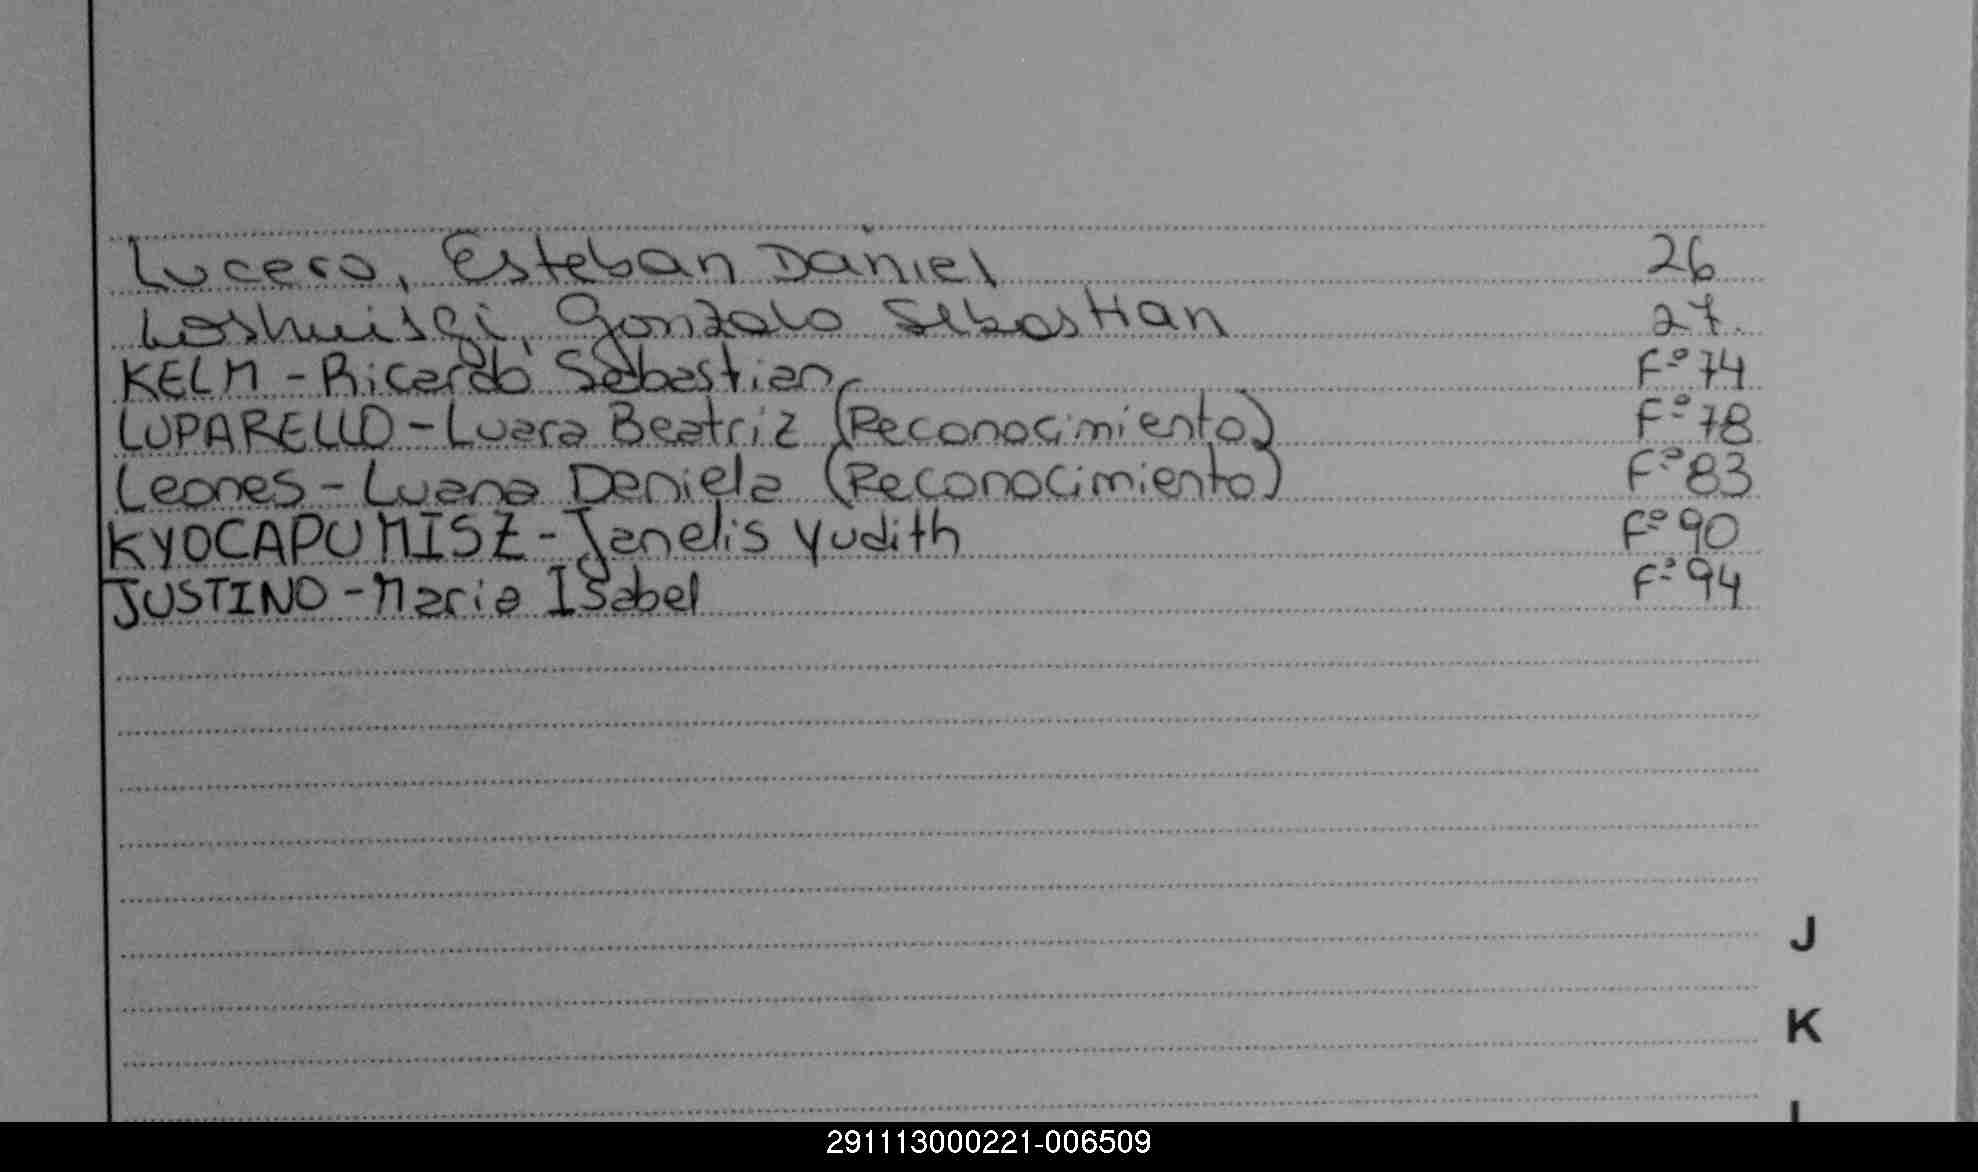 Lucero, Esteban Daniel 26
Gonzalo Sebastian 27
KELM - Ricardo Sebastian F° 74
LUPARELLO - Luara Beatriz (Reconocimiento) F° 78
Leones - Luana Daniela (Reconocimiento) F° 83
KYOCAPUMISZ - Janelis Yudith F° 90
JUSTINO - Maria Isabel F° 94
J
K
291113000221-006509